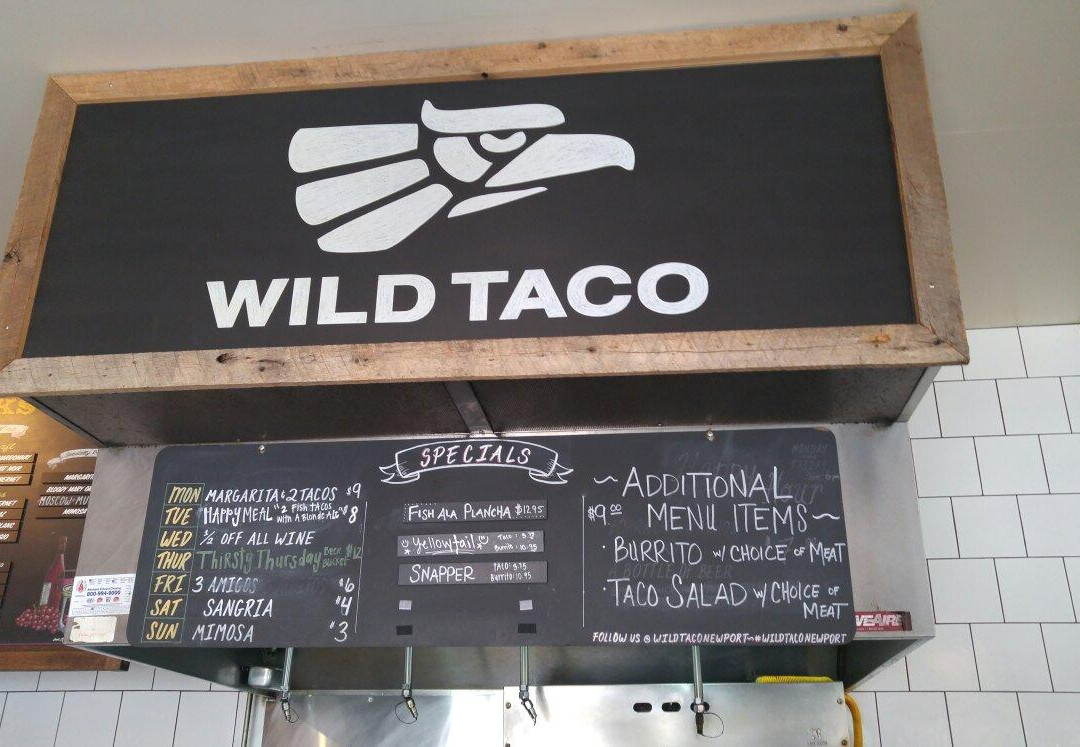 WILD TACO
SPECIALS
MON MARGARITA & 2 TACOS $9
TUE HAPPY MEAL "2 FISH TACOS with A Blonde Ale" $8
WED 1/2 OFF ALL WINE
THUR Thirsty Thursday BEER BUCKET $12
FRI 3 AMIGOS $6
SAT SANGRIA $4
SUN MIMOSA $3
FISH ALA PLANCHA $12.95
Yellowtail
Burrito 10.95
SNAPPER TACO: 5.75
Burrito: 10.95
~ ADDITIONAL
$9.00 MENU ITEMS ~
· BURRITO w/ CHOICE OF MEAT
· TACO SALAD w/ CHOICE OF
MEAT
FOLLOW US @ WILDTACONEWPORT ~ #WILDTACONEWPORT
800-994-9000